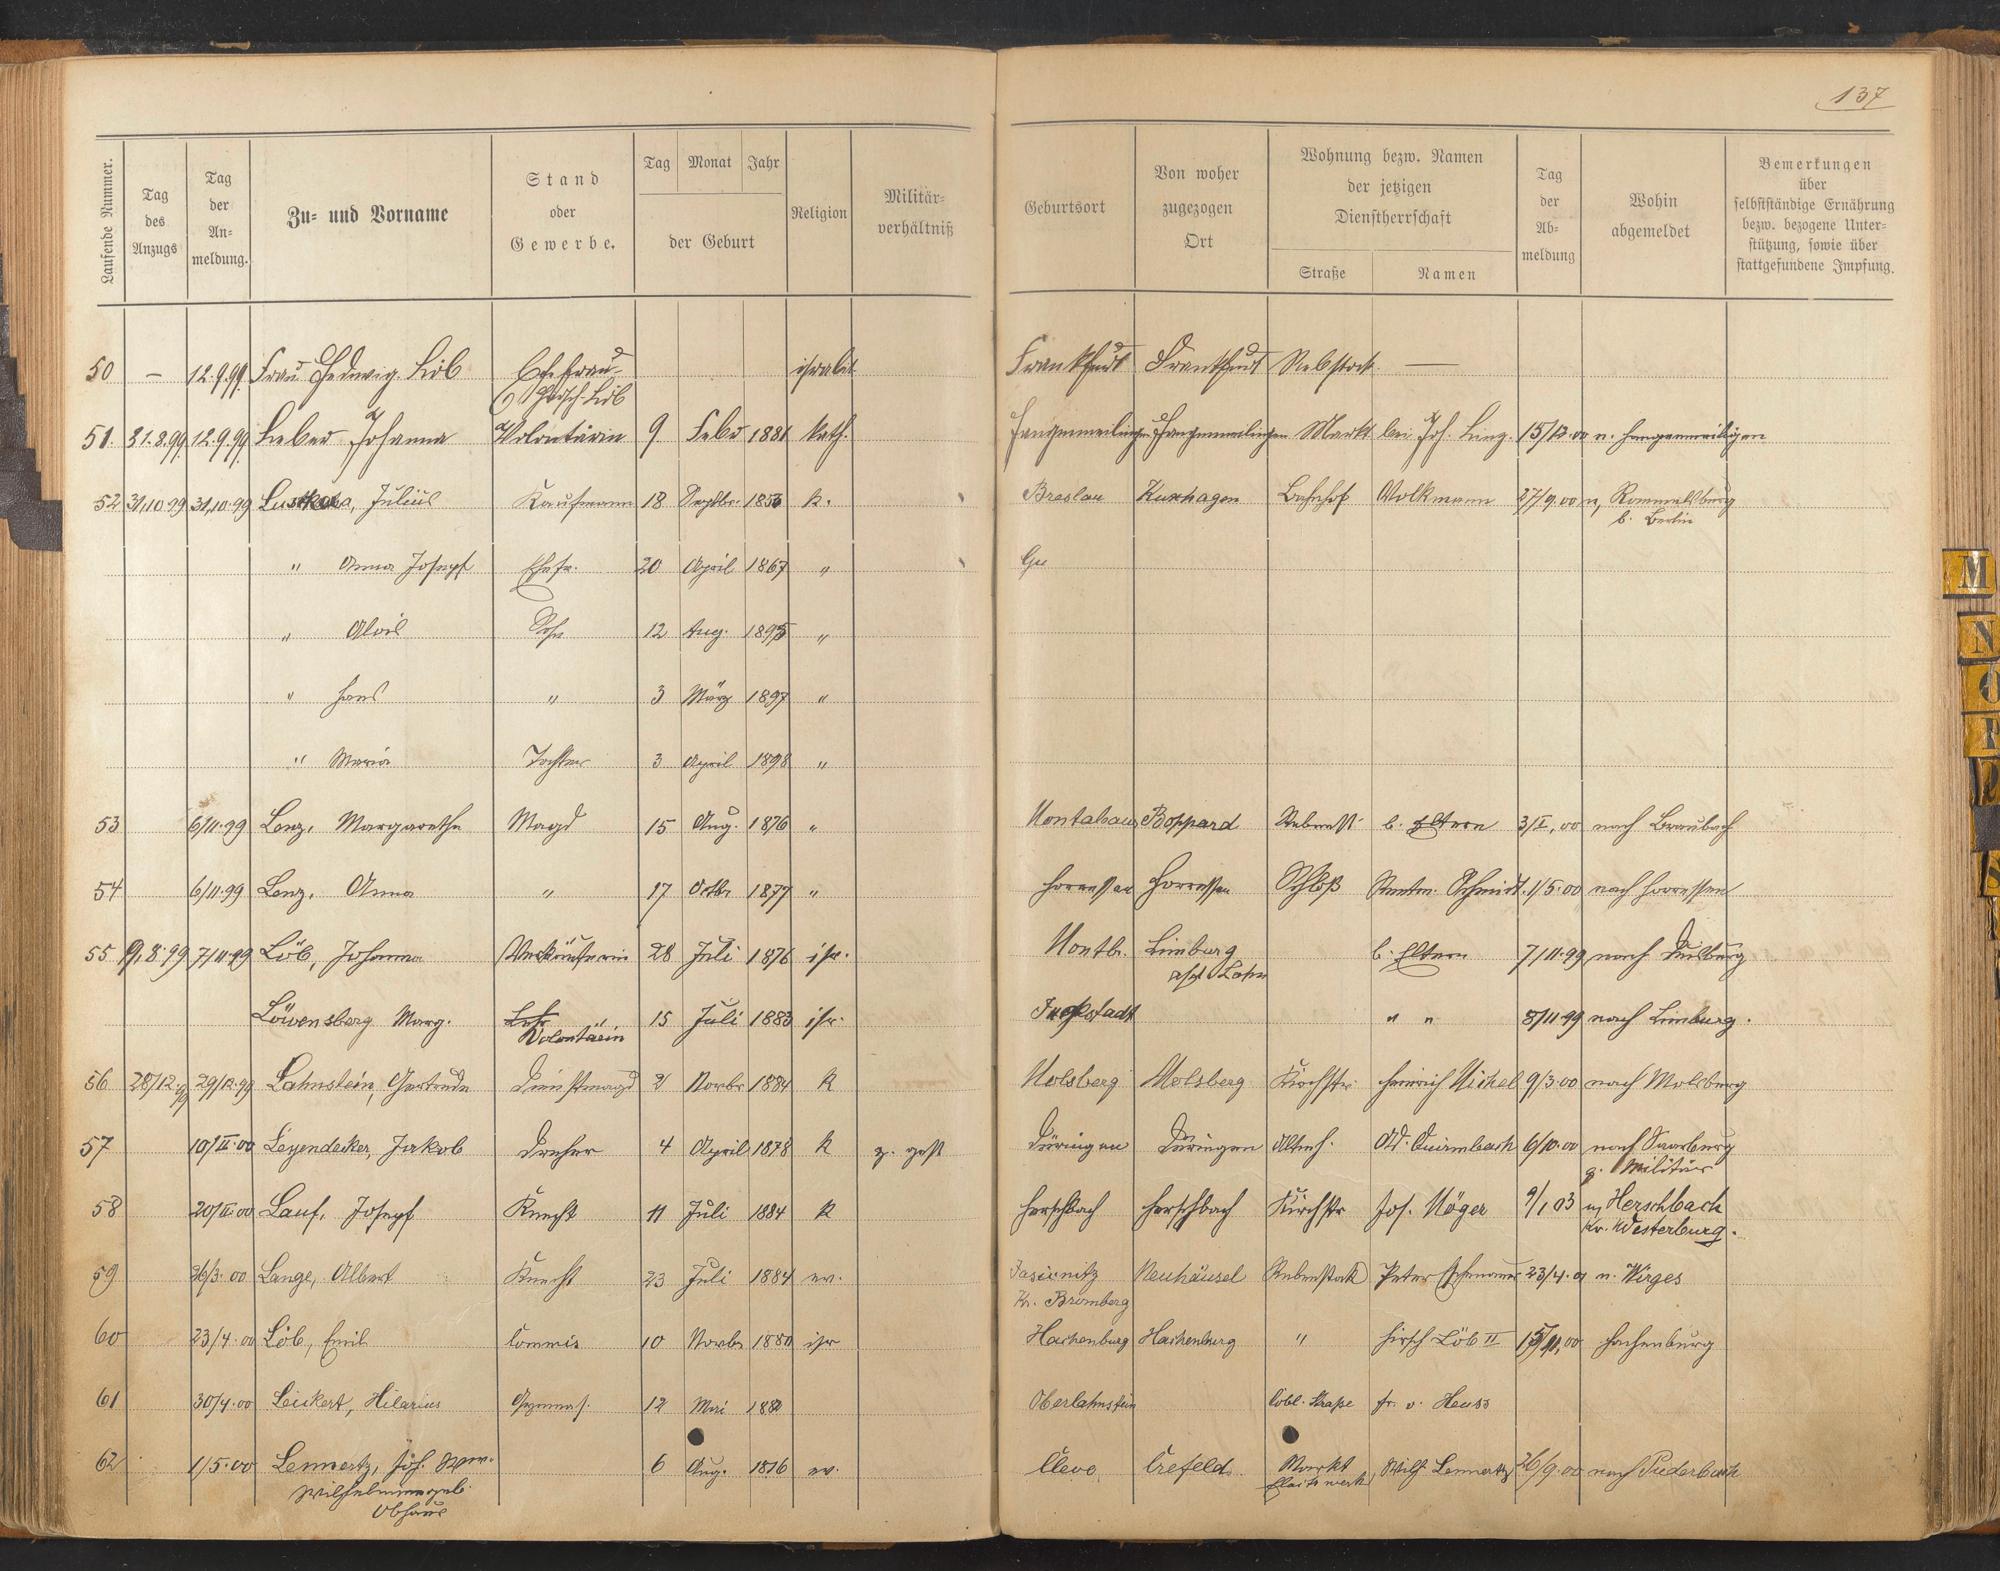 137
Laufende Nummer.
Tag des Anzugs
Tag der An- meldung.
Zu- und Vorname
Stand oder Gewerbe.
Tag Monat Jahr
der Geburt
Religion
Militär- verhältniß
Geburtsort
Von woher zugezogen Ort
Wohnung bezw. Namen der jetzigen Dienstherrschaft
Straße Namen
Tag der Ab- meldung
Wohin abgemeldet
Bemerkungen über selbstständige Ernährung bezw. bezogene Unter- stützung, sowie über stattgefundene Impfung.
50 — 12.9.99. Frau Hedwig Löb Ehefrau israelit Frankfurt Frankfurt Rebstock —
Hirsch Löb
51. 31.8.99. 12.9.99. Lieber Johanna Volontärin 9 Febr 1881 kath. Markt bei Jos. 15/12.00 n.
52 31,10.99 31,10.99 Julius Kaufmann 18 Septbr. 1853 k. Breslau Kuxhagen Bahnhof Volkmann 27/9.00 n, Rommelsburg
b. Berlin
" Anna Josepf Ehefr. 20 April 1867 "
" Alois Sohn 12 Aug. 1895 "
" Hans " 3 März 1897 "
" Maria Tochter 3 April 1898 "
53 6/11.99 Lenz, Margarethe Magd 15 Aug. 1876 " Montabaur Boppard b. Eltern 3/I,00 nach Braubach
54 6/11.99 Lenz, Anna " 17 Octbr 1877 " Horressen Horressen Schloß Rentm. Schmidt. 1/5.00 nach Horressen
55 9,8.99 7/11.99 Löb, Johanna Verkäuferin 28 Juli 1876 isr. Montb. Limburg b. Eltern 7/11.99 nach Duisburg
a/d Lahn
Löwensberg Marg. Volontärin 15 Juli 1883 isr. " " 8/11.99 nach Limburg.
56 28/12.99 29/12.99 Lahnstein, Gertrude Dienstmagd 2 Novbr 1884 K Molsberg Molsberg Kirchstr. Heinrich Michel 9/3.00 nach Molsberg
57 10/II.00 Leyendecker, Jakob Dreher 4 April 1878 K z. gest Düringen Düringen Ad. Quirmbach 6/10.00 nach Saarburg
z. Militär
58 20/II.00 Lauf, Josepf Knecht 11 Juli 1884 K Herschbach Herschbach Kirchstr Jos. Möger 9/1,03 n, Herschbach
Kr. Westerburg.
59 26/3.00 Lange, Albert Knecht 23 Juli 1884 ev. Jasienitz Neuhäusel Rebenstock Peter 23/4.01 n. Wirges
Kr. Bromberg
60 23/4.00 Löb, Emil Commis 10 Novbr 1880 isr Hachenburg Hachenburg " Hirsch Löb II Hachenburg
61 30/4.00 Leikert, Hilarius Gymnas. 12 Mai 188 Oberlahnstein Cobl. Straße Fr. v. Heuss
62 1/5.00 Lennertz, Joh. Wwe. 6 Aug. 1816 ev. Cleve, Crefeld. Markt Wilh. Lennertz 26/9.00 nach Puderbach
Wilhelmine geb.
Obhaus
M
N
O